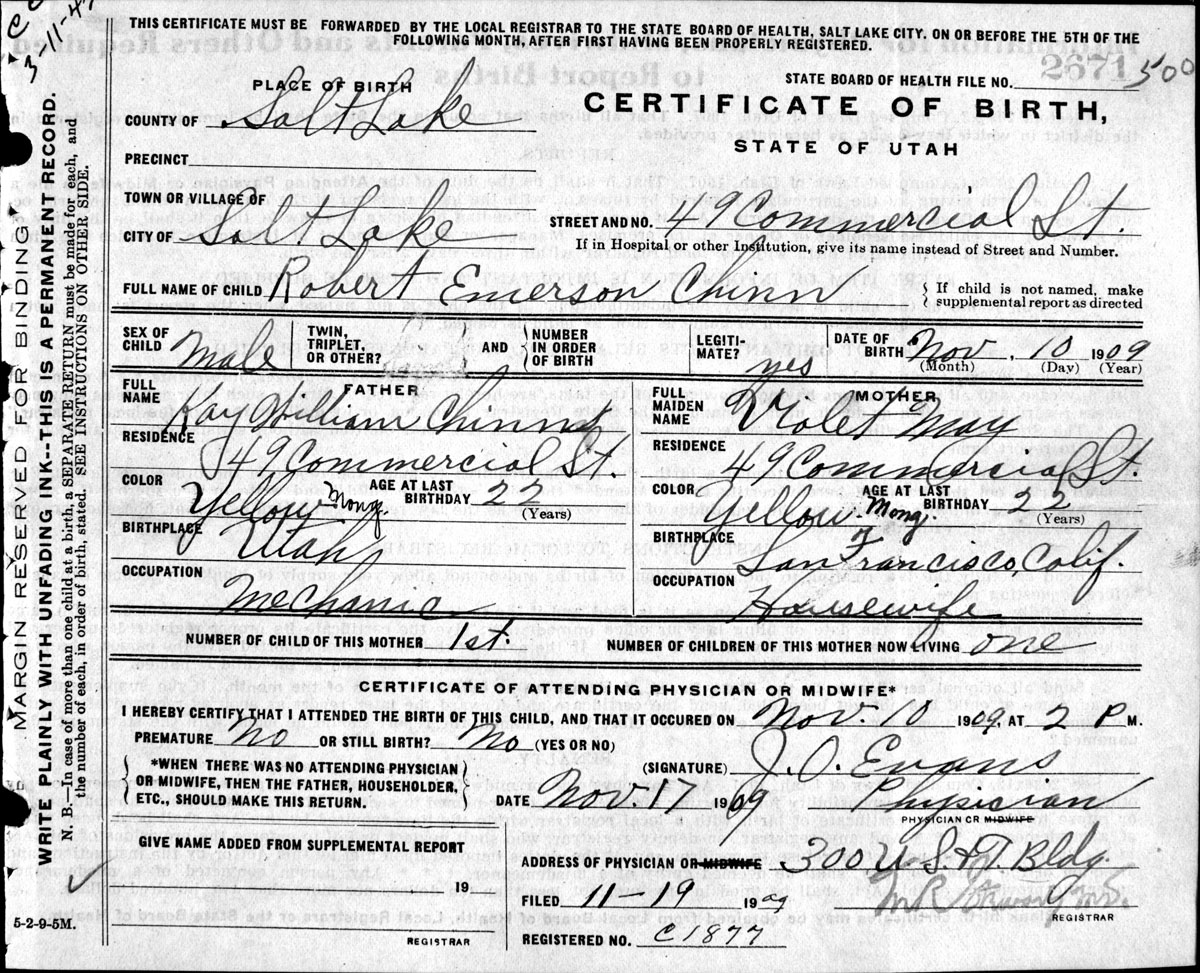 THIS CERTIFICATE MUST BE FORWARDED BY THE LOCAL REGISTRAR TO THE STATE BOARD OF HEALTH, SALT LAKE CITY, ON OR BEFORE THE 5TH OF THE
FOLLOWING MONTH, AFTER FIRST HAVING BEEN PROPERLY REGISTERED.
MARGIN RESERVED FOR BINDING
WRITE PLAINLY WITH UNFADING INK--THIS IS A PERMANENT RECORD.
N. B.—In case of more than one child at a birth, a SEPARATE RETURN must be made for each, and
the number of each, in order of birth, stated. SEE INSTRUCTIONS ON OTHER SIDE.
STATE BOARD OF HEALTH FILE NO. 2671 500
PLACE OF BIRTH
CERTIFICATE OF BIRTH,
STATE OF UTAH
COUNTY OF Salt Lake
PRECINCT
TOWN OR VILLAGE OF
CITY OF Salt Lake
STREET AND NO. 49 Commercial St.
If in Hospital or other Institution, give its name instead of Street and Number.
FULL NAME OF CHILD Robert Emerson Chinn
If child is not named, make
supplemental report as directed
SEX OF CHILD Male
TWIN, TRIPLET, OR OTHER?
AND
NUMBER IN ORDER OF BIRTH
LEGITI-MATE? yes
DATE OF BIRTH Nov. 10 1909
(Month) (Day) (Year)
FATHER
FULL NAME Ray William Chinn
RESIDENCE 49 Commercial St.
COLOR Yellow Mong. AGE AT LAST BIRTHDAY 22
(Years)
BIRTHPLACE Utah
OCCUPATION Mechanic
MOTHER
FULL MAIDEN NAME Violet May
RESIDENCE 49 Commercial St.
COLOR Yellow Mong. AGE AT LAST BIRTHDAY 22
(Years)
BIRTHPLACE San Francisco Calif.
OCCUPATION Housewife
NUMBER OF CHILD OF THIS MOTHER 1st. NUMBER OF CHILDREN OF THIS MOTHER NOW LIVING one
CERTIFICATE OF ATTENDING PHYSICIAN OR MIDWIFE*
I HEREBY CERTIFY THAT I ATTENDED THE BIRTH OF THIS CHILD, AND THAT IT OCCURED ON Nov. 10 1909, AT 2 P M.
PREMATURE No OR STILL BIRTH? No (YES OR NO)
*WHEN THERE WAS NO ATTENDING PHYSICIAN
OR MIDWIFE, THEN THE FATHER, HOUSEHOLDER,
ETC., SHOULD MAKE THIS RETURN.
(SIGNATURE) J. O. Evans
DATE Nov. 17 1909 Physician
PHYSICIAN OR MIDWIFE
GIVE NAME ADDED FROM SUPPLEMENTAL REPORT
19
REGISTRAR
ADDRESS OF PHYSICIAN OR MIDWIFE 300 U. S. & T. Bldg.
FILED 11-19 1909
REGISTRAR
REGISTERED NO. C1877
5-2-9-5M.